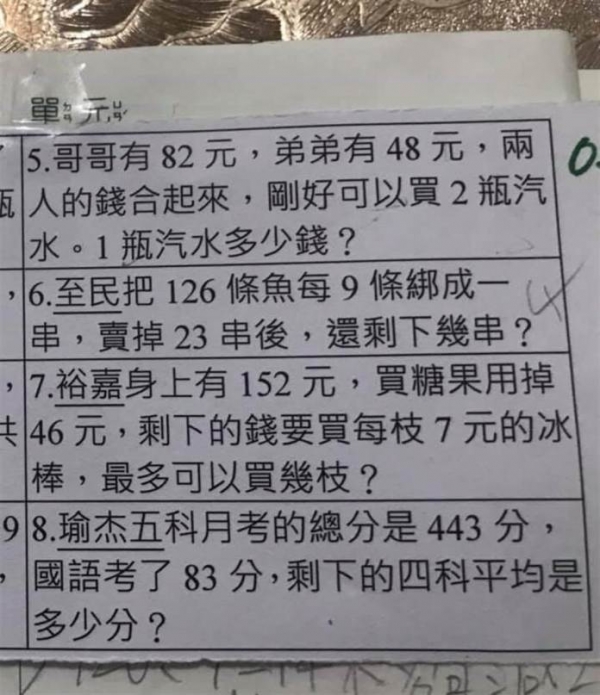 單元
5.哥哥有 82 元，弟弟有 48 元，兩
人的錢合起來，剛好可以買 2 瓶汽
水。1 瓶汽水多少錢？
6.至民把 126 條魚每 9 條綁成一
串，賣掉 23 串後，還剩下幾串？
7.裕嘉身上有 152 元，買糖果用掉
46 元，剩下的錢要買每枝 7 元的冰
棒，最多可以買幾枝？
8.瑜杰五科月考的總分是 443 分，
國語考了 83 分，剩下的四科平均是
多少分？